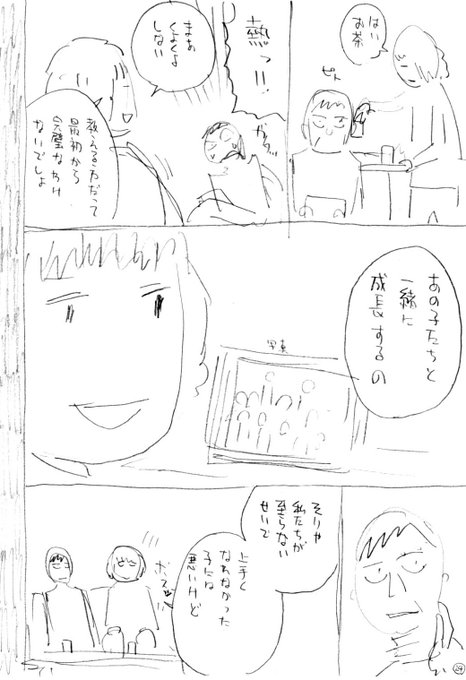 はい
お茶
熱っ!!
まあ
くよくよ
しない
教える方だって
最初から
完璧なわけ
ないでしょ
あの子たちと
一緒に
成長するの
写真
そりゃ
私たちが
至らない
せいで
上手く
なれなかった
子には
悪いけど